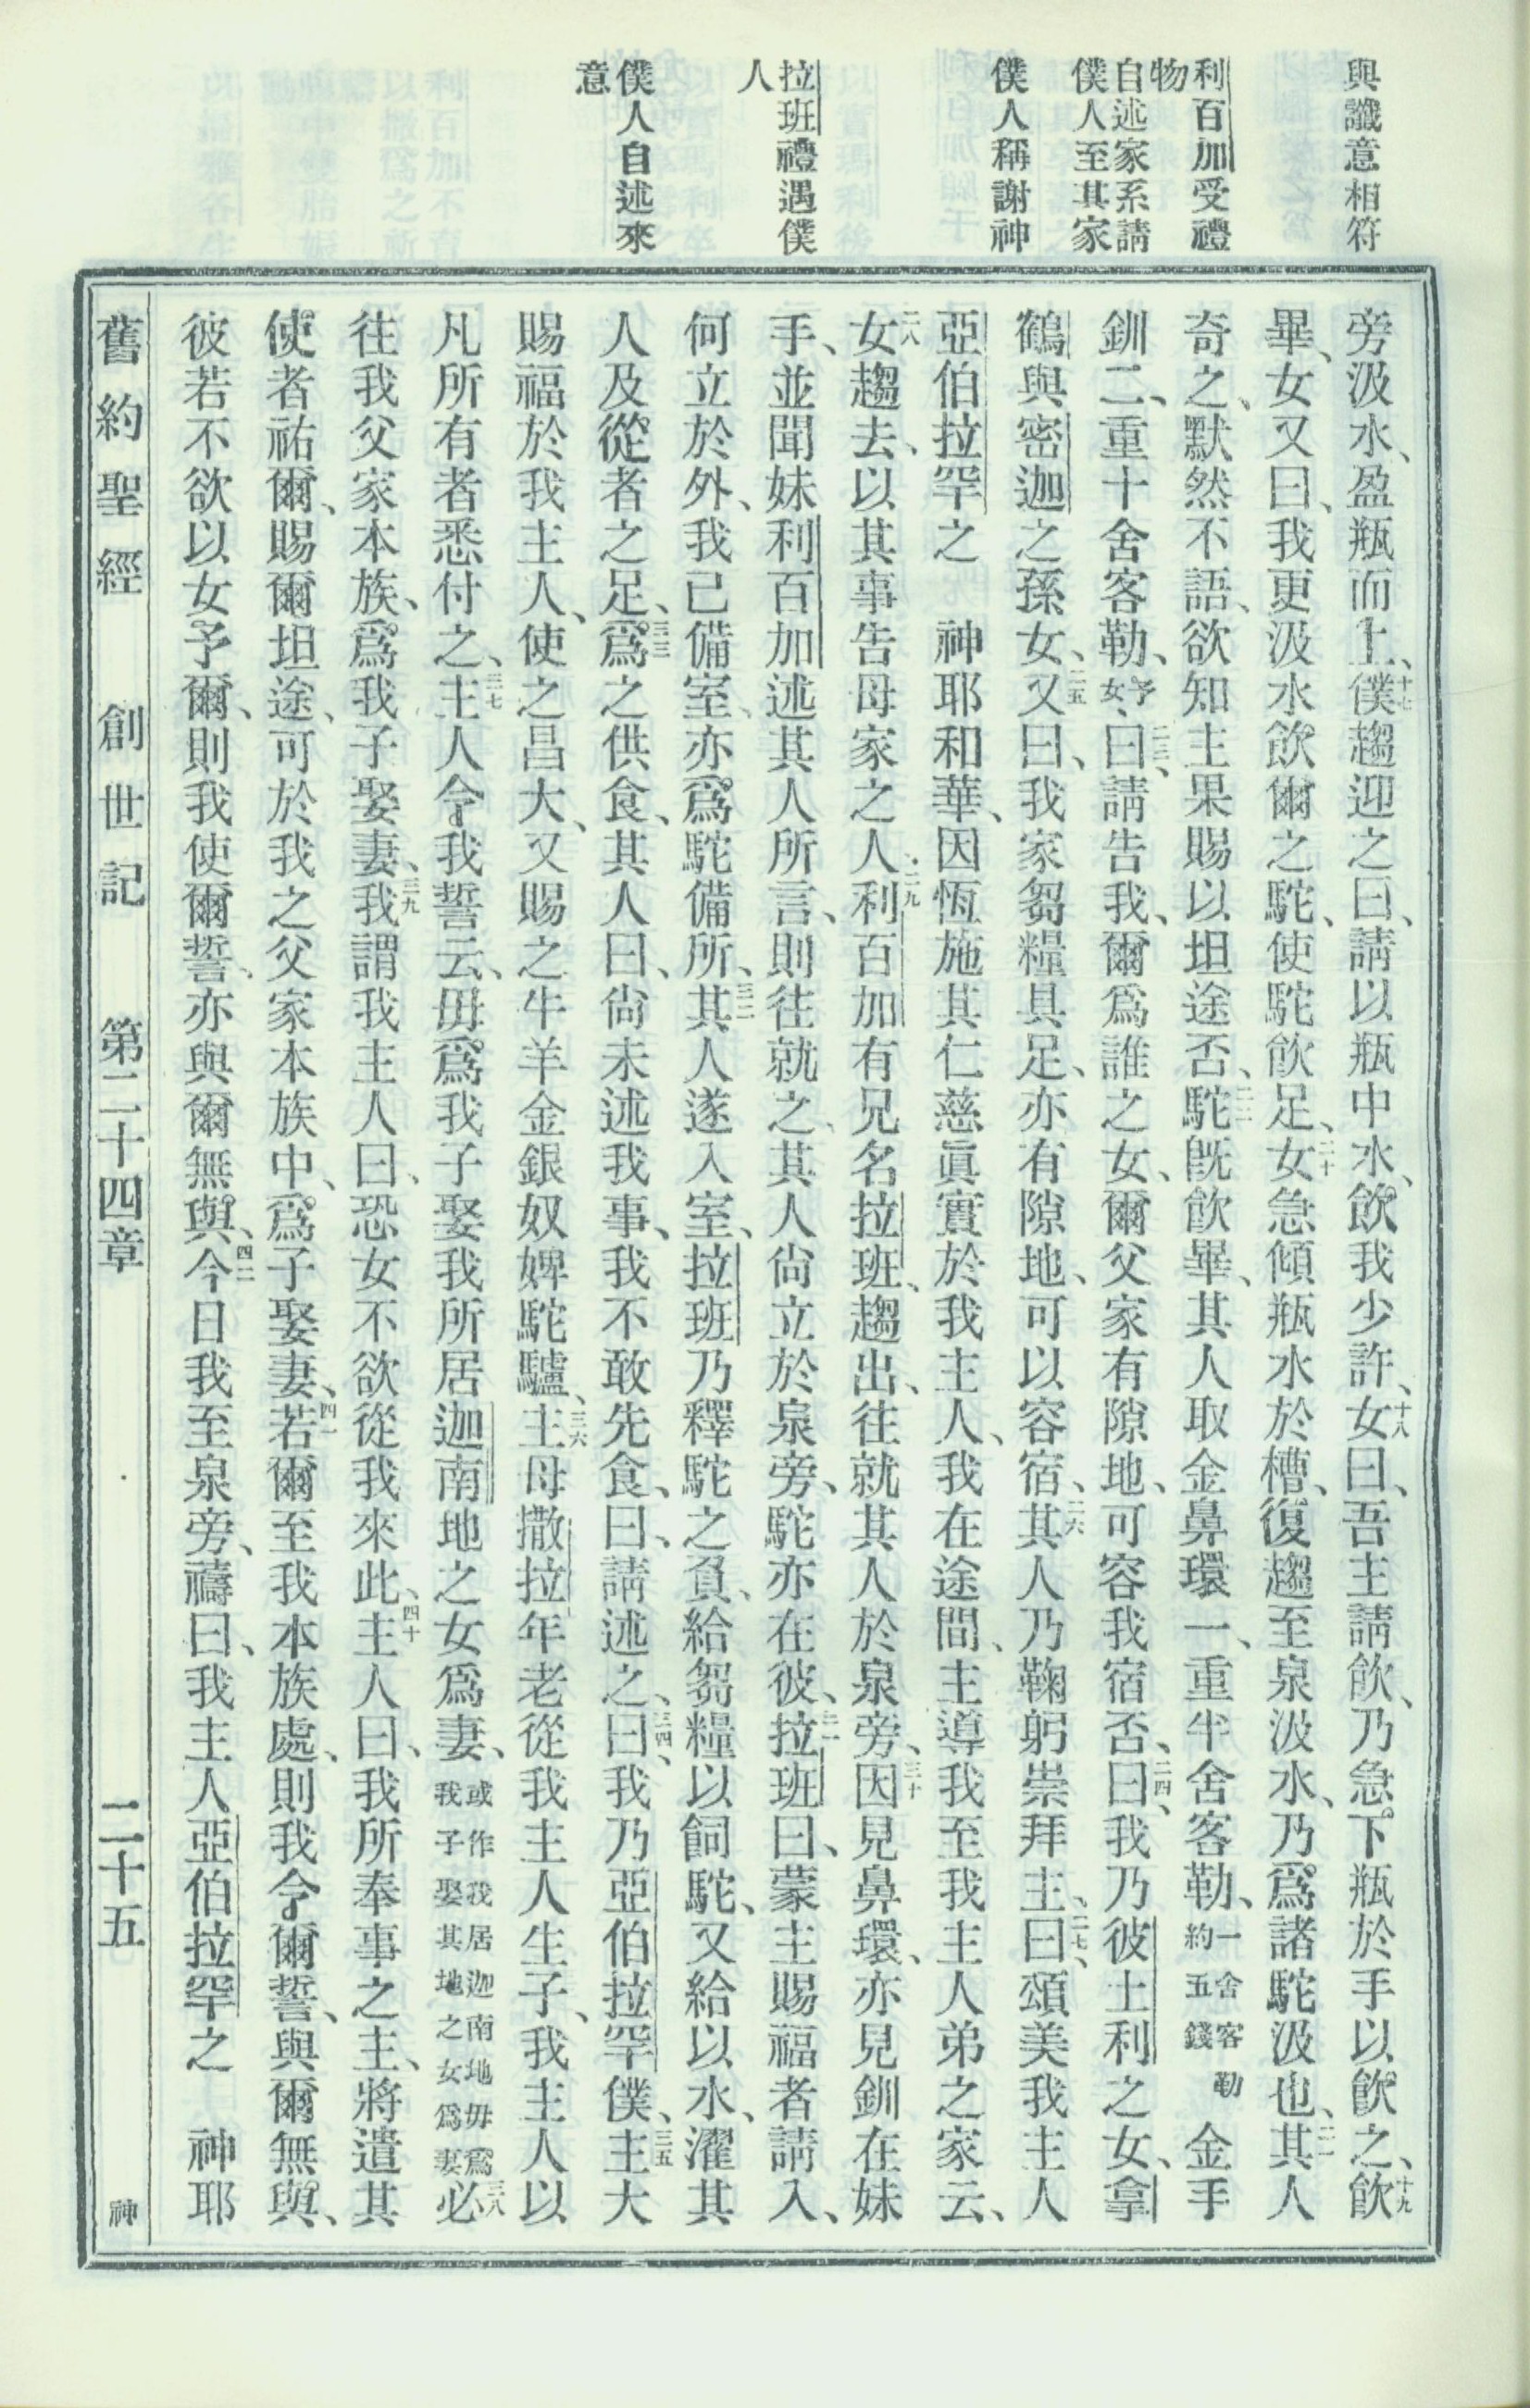 與讖意相符
利百加受禮
物
自述家系請
僕人至其家
僕人稱謝神
拉班禮遇僕
人
僕人自述來
意
旁汲水、盈瓶而上、十七僕趨迎之曰、請以瓶中水、飲我少許、十八女曰、吾主請飲、乃急下瓶於手以飲之、十九飲
畢、女又曰、我更汲水飲爾之駝、使駝飲足、二十女急傾瓶水於槽、復趨至泉汲水、乃爲諸駝汲也、二一其人
奇之、默然不語、欲知主果賜以坦途否、二二駝旣飲畢、其人取金鼻環一、重半舍客勒、一舍客勒約五錢金手
釧二、重十舍客勒、予女、二三曰、請告我、爾爲誰之女、爾父家有隙地、可容我宿否、二四曰、我乃彼土利之女、拿
鶴與密迦之孫女、二五又曰、我家芻糧具足、亦有隙地、可以容宿、二六其人乃鞠躬崇拜主、二七曰、頌美我主人
亞伯拉罕之　神耶和華、因恆施其仁慈眞實於我主人、我在途間、主導我至我主人弟之家云、
二八女趨去、以其事告母家之人、二九利百加有兄名拉班、趨出、往就其人於泉旁、三十因見鼻環、亦見釧在妹
手、並聞妹利百加述其人所言、則往就之、其人尙立於泉旁、駝亦在彼、三一拉班曰、蒙主賜福者請入、
何立於外、我已備室、亦爲駝備所、三二其人遂入室、拉班乃釋駝之負、給芻糧以飼駝、又給以水、濯其
人及從者之足、三三爲之供食、其人曰、尙未述我事、我不敢先食、曰、請述之、三四曰、我乃亞伯拉罕僕、三五主大
賜福於我主人、使之昌大、又賜之牛羊金銀奴婢駝驢、三六主母撒拉年老從我主人生子、我主人以
凡所有者悉付之、三七主人令我誓云、毋爲我子娶我所居迦南地之女爲妻、或作我居迦南地毋爲我子娶其地之女爲妻三八必
往我父家本族、爲我子娶妻、三九我謂我主人曰、恐女不欲從我來此、四十主人曰、我所奉事之主、將遣其
使者祐爾、賜爾坦途、可於我之父家本族中、爲子娶妻、四一若爾至我本族處、則我令爾誓、與爾無與、
彼若不欲以女予爾、則我使爾誓、亦與爾無與、四二今日我至泉旁、禱曰、我主人亞伯拉罕之　神耶
舊約聖經　創世記　第二十四章　二十五　神